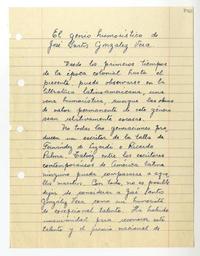 El genio humorístico de
José Santos González Vera
Desde los primeros tiempos
de la época colonial hasta el
presente, puede observarse en la
literatura latinoamericana, una
vena humorística, aunque las obras
de valor permanente de este género
sean relativamente escasas.
No todas las generaciones pro
ducen un escritor de la talla de
Fernández de Lizardi o Ricardo
Palma. Talvez entre los escritores
contemporáneos de América Latina
ninguno pueda compararse a aque
llos maestros. Con todo, no es posible
dejar de considerar a José Santos
González Vera como un humorista
de excepcional talento. Ha habido
unanimidad para reconocer este
talento y el premio nacional de